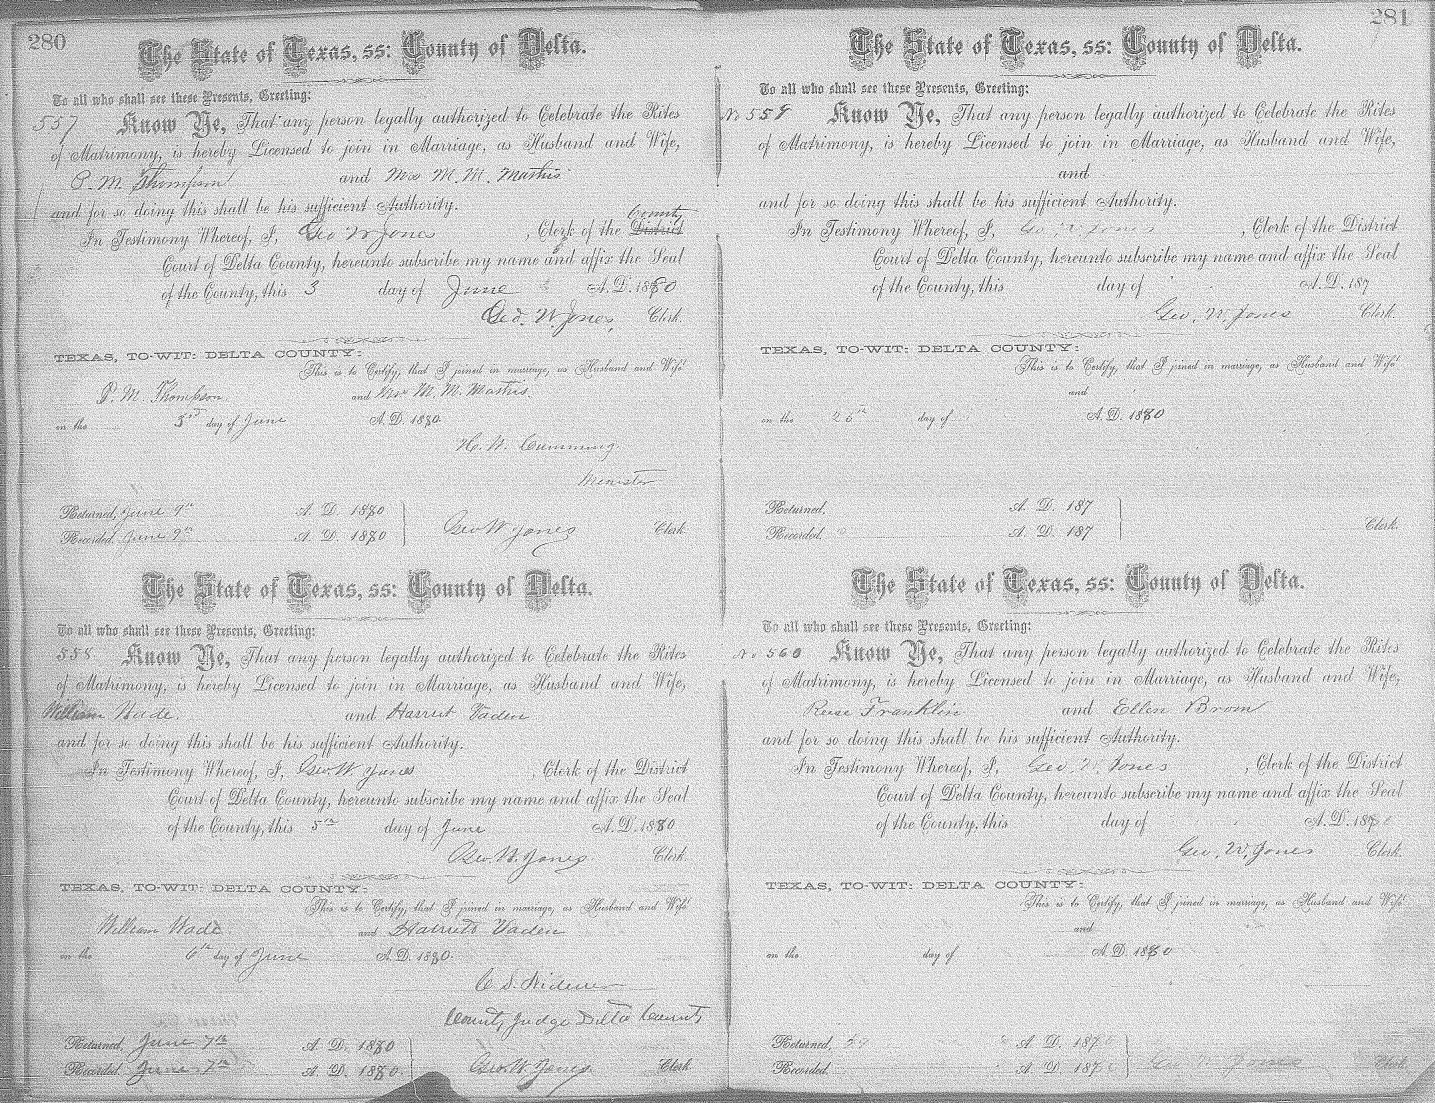 280
The State of Texas, ss: County of Delta.
To all who shall see these Presents, Greeting:
557 Know Ye, That any person legally authorized to Celebrate the Rites
of Matrimony, is hereby Licensed to join in Marriage, as Husband and Wife,
P. M. Thompson and Mrs M. M. Mathis
and for so doing this shall be his sufficient Authority.
County
In Testimony Whereof, I, Geo W Jones, Clerk of the District
Court of Delta County, hereunto subscribe my name and affix the Seal
of the County, this 3 day of June A.D. 1880
Geo. W. Jones, Clerk.
TEXAS, TO-WIT: DELTA COUNTY:
This is to Certify, that I joined in marriage, as Husband and Wife
P. M. Thompson and Mrs M. M. Mathis
on the 3rd day of June A.D. 1880
H. N. Cumming
Minister
Returned, June 9th A. D. 1880
Recorded, June 9th A. D. 1880 Geo W Jones Clerk
The State of Texas, ss: County of Delta.
To all who shall see these Presents, Greeting:
558 Know Ye, That any person legally authorized to Celebrate the Rites
of Matrimony, is hereby Licensed to join in Marriage, as Husband and Wife,
William Wade. and Harriet Vaden
and for so doing this shall be his sufficient Authority.
In Testimony Whereof, I, Geo. W. Jones, Clerk of the District
Court of Delta County, hereunto subscribe my name and affix the Seal
of the County, this 5th day of June A.D. 1880
Geo. W. Jones Clerk.
TEXAS, TO-WIT: DELTA COUNTY:
This is to Certify, that I joined in marriage, as Husband and Wife
William Wade and Harriett Vaden
on the 6th day of June A.D. 1880.
C. S.
County Judge Delta County
Returned, June 7th A. D. 1880
Recorded, June 7th A. D. 1880. Geo. W. Jones Clerk
281
The State of Texas, ss: County of Delta.
To all who shall see these Presents, Greeting:
No 559 Know Ye, That any person legally authorized to Celebrate the Rites
of Matrimony, is hereby Licensed to join in Marriage, as Husband and Wife,
and
and for so doing this shall be his sufficient Authority.
In Testimony Whereof, I, Geo. W. Jones, Clerk of the District
Court of Delta County, hereunto subscribe my name and affix the Seal
of the County, this day of A.D. 187
Geo. W. Jones Clerk.
TEXAS, TO-WIT: DELTA COUNTY:
This is to Certify, that I joined in marriage, as Husband and Wife
and
on the 26th day of A.D. 1880
Returned, A. D. 187
Recorded, A. D. 187 Clerk.
The State of Texas, ss: County of Delta.
To all who shall see these Presents, Greeting:
No 560 Know Ye, That any person legally authorized to Celebrate the Rites
of Matrimony, is hereby Licensed to join in Marriage, as Husband and Wife,
Rese Franklin and Ellen Brom
and for so doing this shall be his sufficient Authority.
In Testimony Whereof, I, Geo. W. Jones, Clerk of the District
Court of Delta County, hereunto subscribe my name and affix the Seal
of the County, this day of A.D. 1880
Geo. W. Jones Clerk.
TEXAS, TO-WIT: DELTA COUNTY:
This is to Certify, that I joined in marriage, as Husband and Wife
and
on the day of A.D. 1880
Returned, A. D. 187
Recorded A. D. 187 Geo W Jones Clerk